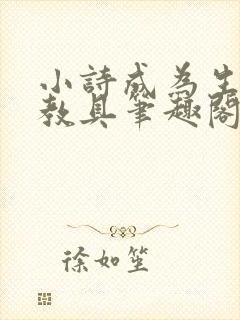 小詩成為生
教具筆趣閣
徐如笙